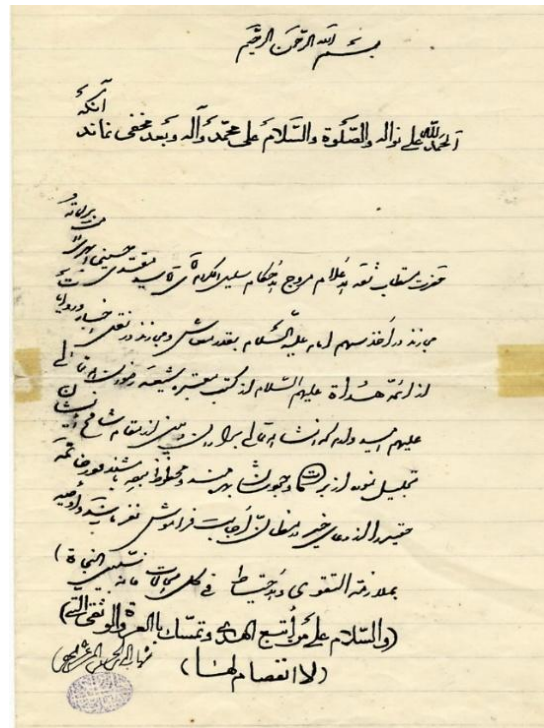 بسم الله الرحمن الرحیم
الحمد لله علی نواله والصلوة والسلام علی محمد وآله وبعد مخفی نماند آنکه
حضرت مستطاب ثقه الاعلام مروج الاحکام سلیل آقای سید مقتدی حسینی
مجازند در اخذ سهم امام علیه السلام بقدر معاش و مجازند در نقل اخبار و روایات
از ائمه هداة علیهم السلام از کتب معتبره شیعه رضوان الله تعالی
علیهم امید وارم که انشاء الله تعالی برادران دینی از مقام شامخ ایشان
تجلیل نموده از برکات وجودشان بهرمند و محظوظ باشند
حقیر را از دعای خیر در مظان اجابت فراموش نفرمایند واوصیه
بملازمة التقوی والاحتیاط فی کل المجالات فانه سبیل النجاة)
(والسلام علی من اتبع الهدی وتمسک باالعروة الوثقی التی)
(لا انفصام لها)